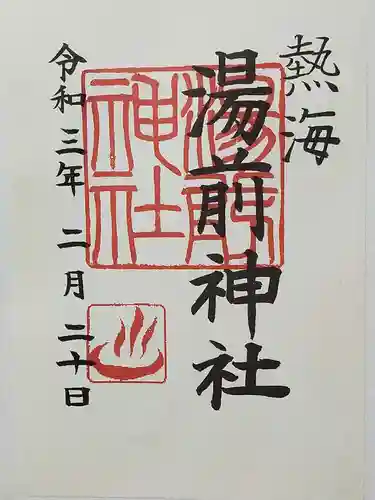 熱海
湯前神社
令和三年二月二十日
湯前
神社